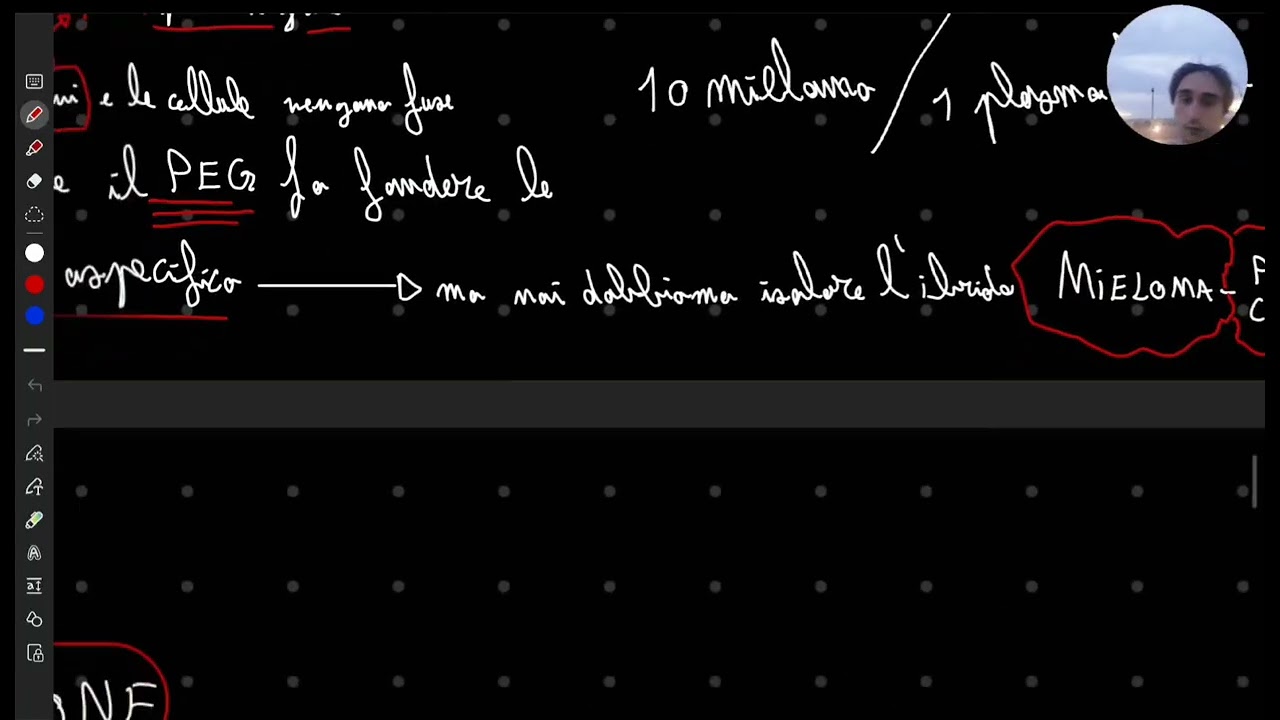 e le cellule vengono fuse
10 mieloma / 1 plasma
e il PEG fa fondere le
aspecifico → ma noi dobbiamo isolare l'ibrido MIELOMA-